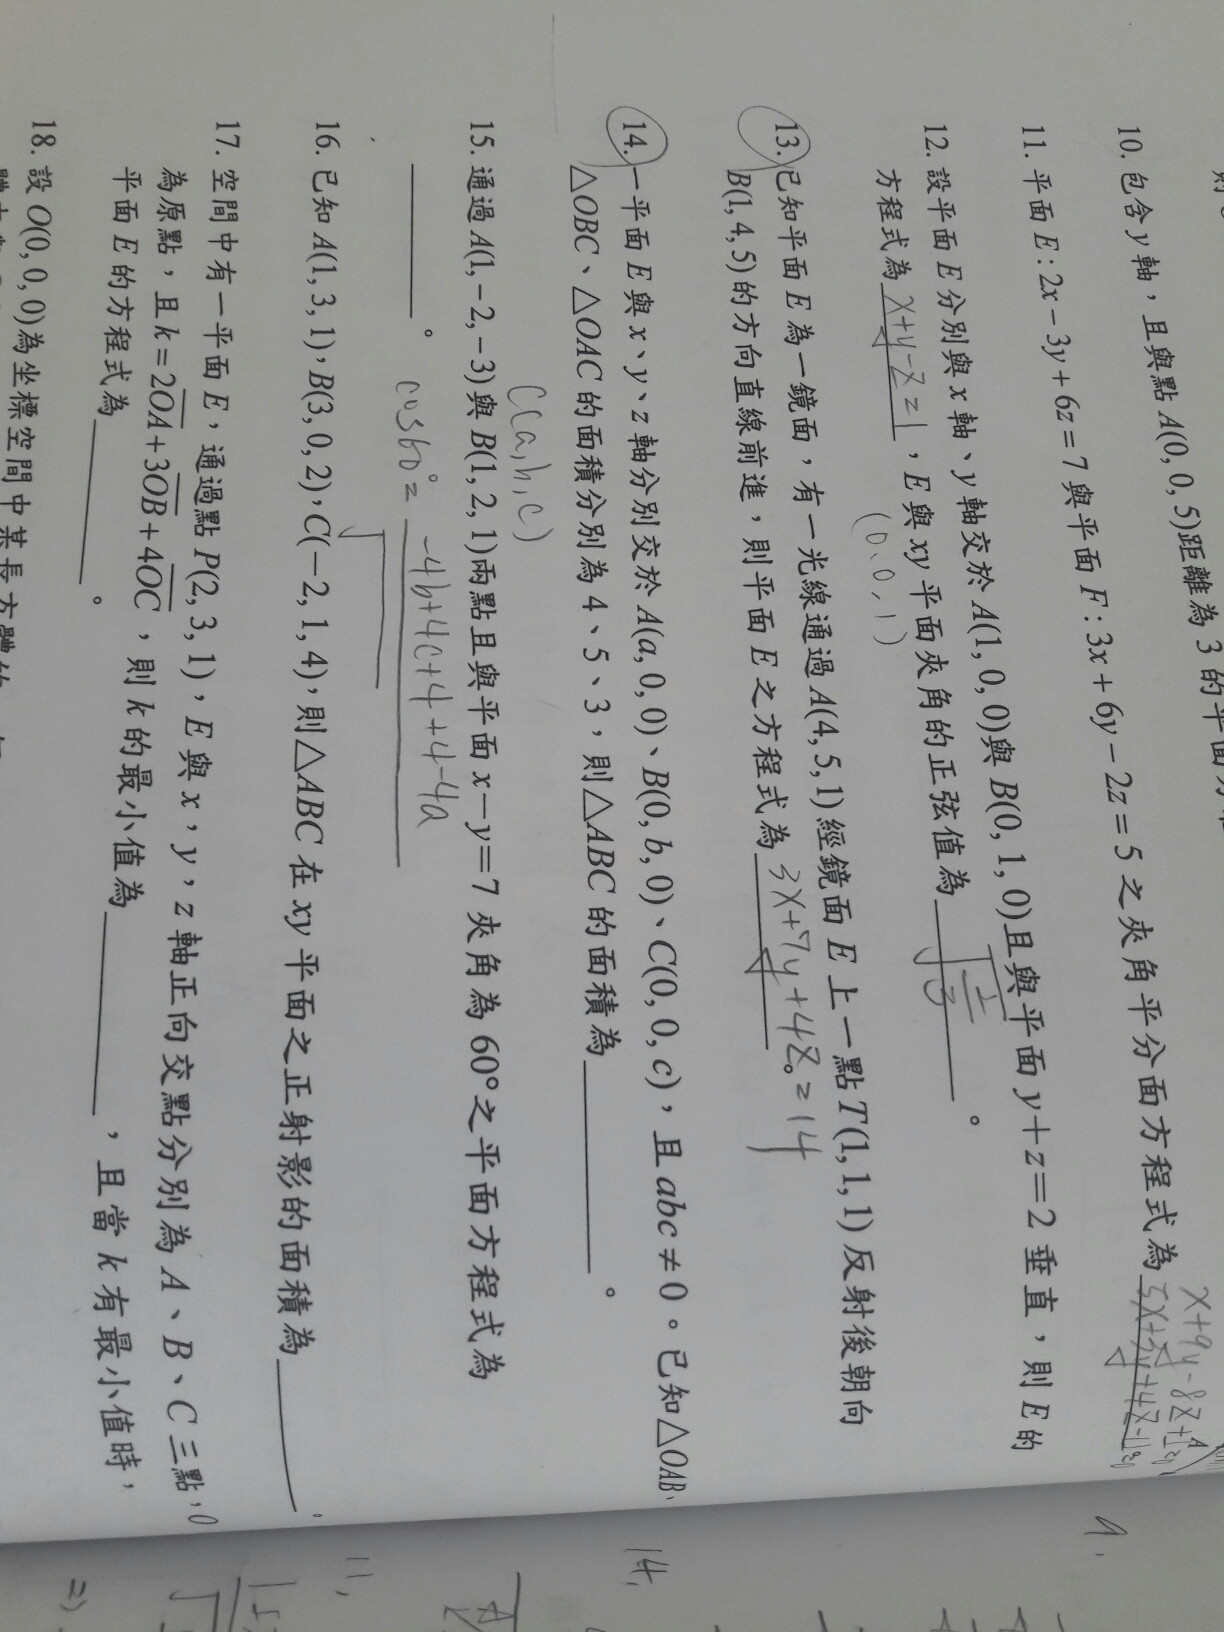 10. 包含 y 軸，且與點 A(0, 0, 5)距離為 3 的平面方
11. 平面 E : 2x－3y＋6z＝7 與平面 F : 3x＋6y－2z＝5 之夾角平分面方程式為 5x+3y+4z-12=0
x+9y-8z+2=0
12. 設平面 E 分別與 x 軸、y 軸交於 A(1, 0, 0)與 B(0, 1, 0)且與平面 y＋z＝2 垂直，則 E 的
方程式為 x+y-z=1，E 與 xy 平面夾角的正弦值為
(0,0,1)
13. 已知平面 E 為一鏡面，有一光線通過 A(4, 5, 1)經鏡面 E 上一點 T(1, 1, 1) 反射後朝向
B(1, 4, 5)的方向直線前進，則平面 E 之方程式為 3x+7y+4z=14。
14. 一平面 E 與 x、y、z 軸分別交於 A(a, 0, 0)、B(0, b, 0)、C(0, 0, c)，且 abc≠0。已知△OAB、
△OBC、△OAC 的面積分別為 4、5、3，則△ABC 的面積為＿＿＿。
C(a,b,c)
15. 通過 A(1,－2,－3)與 B(1, 2, 1)兩點且與平面 x－y＝7 夾角為 60°之平面方程式為
＿＿＿。
cos60°= -4b+4c+4+4-4a
16. 已知 A(1, 3, 1)，B(3, 0, 2)，C(－2, 1, 4)，則△ABC 在 xy 平面之正射影的面積為＿＿＿。
17. 空間中有一平面 E，通過點 P(2, 3, 1)，E 與 x，y，z 軸正向交點分別為 A、B、C 三點，O
為原點，且 k＝2OA＋3OB＋4OC，則 k 的最小值為＿＿＿，且當 k 有最小值時，
平面 E 的方程式為＿＿＿。
18. 設 O(0, 0, 0)為坐標空間中某長方體的
9.
14.
11,
2)